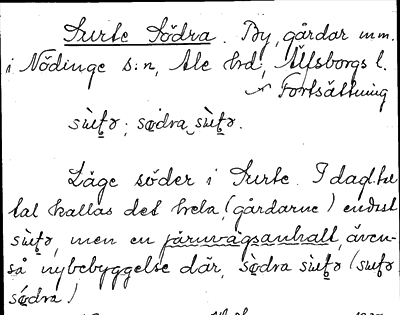 Surte Södra. By, gårdar m.m.
i Nödinge s:n, Ale hd, Älfsborgs l.
Fortsättning
sùʈə; sǿdra sùʈə.
Läge söder i Surte. I dagl.
tal kallas det hela (gårdarne) endast
sùʈə, men en järnvägsanhalt, även-
så nybebyggelse där, sǿdra sùʈə (suʈə
sǿdra)